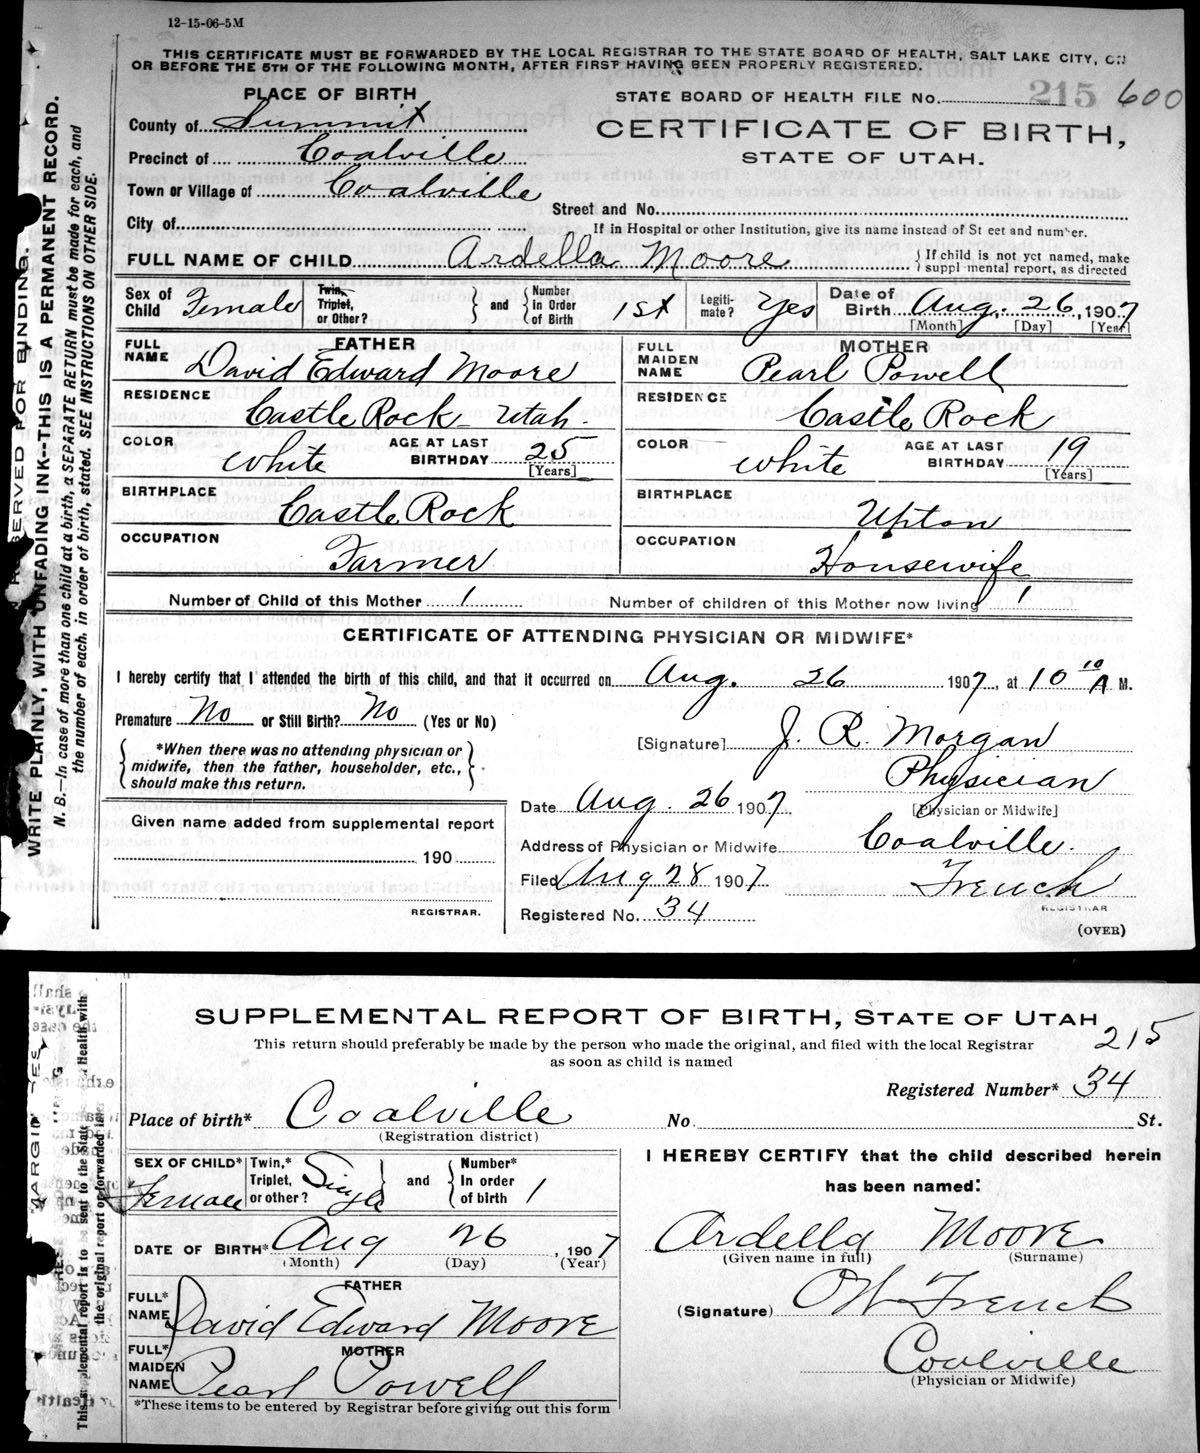 12-15-06-5M
THIS CERTIFICATE MUST BE FORWARDED BY THE LOCAL REGISTRAR TO THE STATE BOARD OF HEALTH, SALT LAKE CITY, ON
OR BEFORE THE 5TH OF THE FOLLOWING MONTH, AFTER FIRST HAVING BEEN PROPERLY REGISTERED.
PLACE OF BIRTH
STATE BOARD OF HEALTH FILE No. 215 600
County of Summit
CERTIFICATE OF BIRTH,
STATE OF UTAH.
Precinct of Coalville
Town or Village of Coalville
Street and No.
City of
If in Hospital or other Institution, give its name instead of St eet and number.
FULL NAME OF CHILD Ardella Moore
{ If child is not yet named, make
suppl mental report, as directed
Sex of Child Female
Twin, Triplet, or Other? } and { Number in Order of Birth 1st
Legiti-mate? Yes
Date of Birth Aug. 26, 1907
[Month] [Day] [Year]
FATHER
FULL NAME David Edward Moore
RESIDENCE Castle Rock Utah.
COLOR White AGE AT LAST BIRTHDAY 25 [Years]
BIRTHPLACE Castle Rock
OCCUPATION Farmer
MOTHER
FULL MAIDEN NAME Pearl Powell
RESIDENCE Castle Rock
COLOR White AGE AT LAST BIRTHDAY 19 [Years]
BIRTHPLACE Upton
OCCUPATION Housewife
Number of Child of this Mother 1
Number of children of this Mother now living 1
CERTIFICATE OF ATTENDING PHYSICIAN OR MIDWIFE*
I hereby certify that I attended the birth of this child, and that it occurred on Aug. 26 1907, at 10 10 A M.
Premature No or Still Birth? No (Yes or No)
{ *When there was no attending physician or
midwife, then the father, householder, etc.,
should make this return. }
[Signature] J. R. Morgan
Physician
[Physician or Midwife]
Date Aug. 26 1907
Given name added from supplemental report
190
REGISTRAR.
Address of Physician or Midwife Coalville.
Filed Aug 28 1907 French
REGISTRAR
Registered No. 34
(OVER)
RESERVED FOR BINDING.
WRITE PLAINLY, WITH UNFADING INK--THIS IS A PERMANENT RECORD.
N. B.—In case of more than one child at a birth, a SEPARATE RETURN must be made for each, and
the number of each, in order of birth, stated. SEE INSTRUCTIONS ON OTHER SIDE.
SUPPLEMENTAL REPORT OF BIRTH, STATE OF UTAH
215
This return should preferably be made by the person who made the original, and filed with the local Registrar
as soon as child is named
Registered Number* 34
Place of birth* Coalville No. St.
(Registration district)
SEX OF CHILD* Female
Twin,* Triplet, or other? Single } and { Number* In order of birth 1
DATE OF BIRTH* Aug 26, 1907
(Month) (Day) (Year)
FATHER
FULL* NAME David Edward Moore
MOTHER
FULL* MAIDEN NAME Pearl Powell
*These items to be entered by Registrar before giving out this form
I HEREBY CERTIFY that the child described herein
has been named:
Ardella Moore
(Given name in full) (Surname)
(Signature) French
Coalville
(Physician or Midwife)